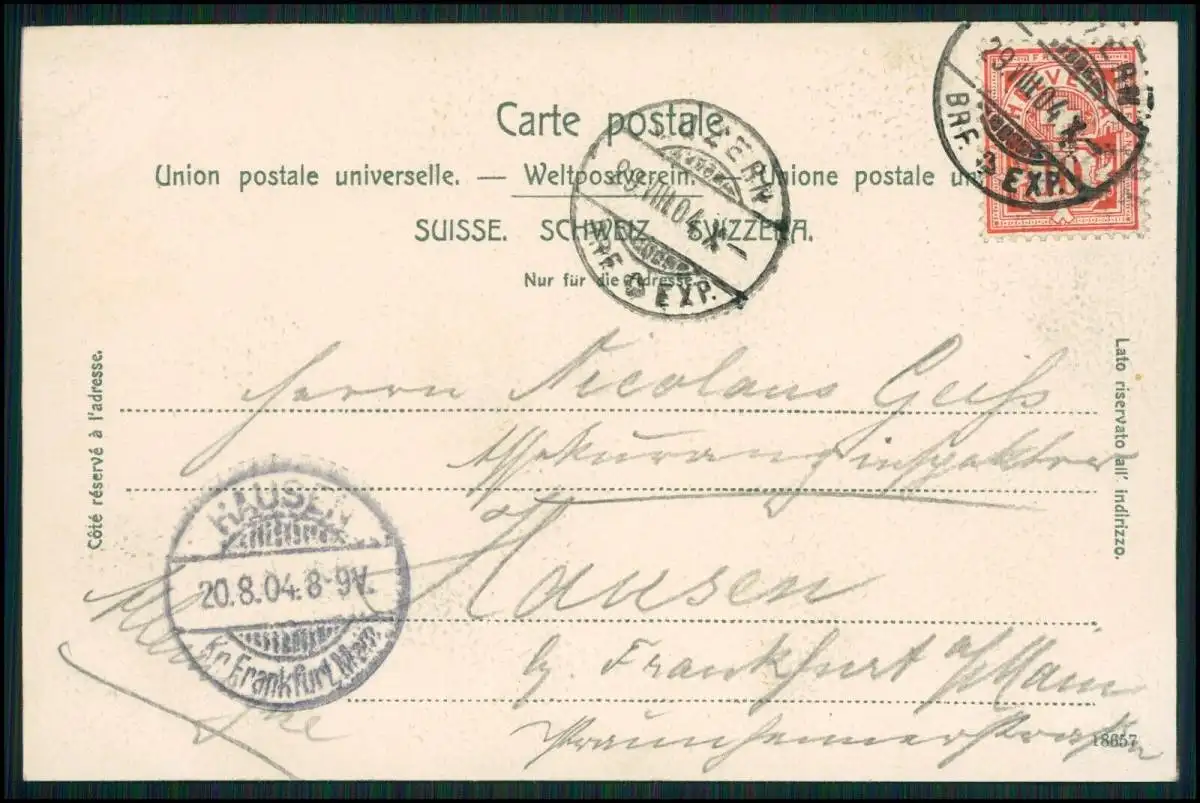 Carte postale.
Union postale universelle. — Weltpostverein. — Unione postale
SUISSE. SCHWEIZ. SVIZZERA.
Nur für die Adresse.
LUZERN
29.VIII.04.X—
BRF. EXP.
29.VIII.04.X—
BRF. EXP.
HELVETIA
Côté réservé à l'adresse.
Lato riservato all' indirizzo.
Herrn Nicolaus Geiß
Assekuranzinspektor
Hausen
b. Frankfurt a/Main
Praunheimerstraße
HAUSEN
20.8.04. 8-9V.
Kr. Frankfurt, Main
18657